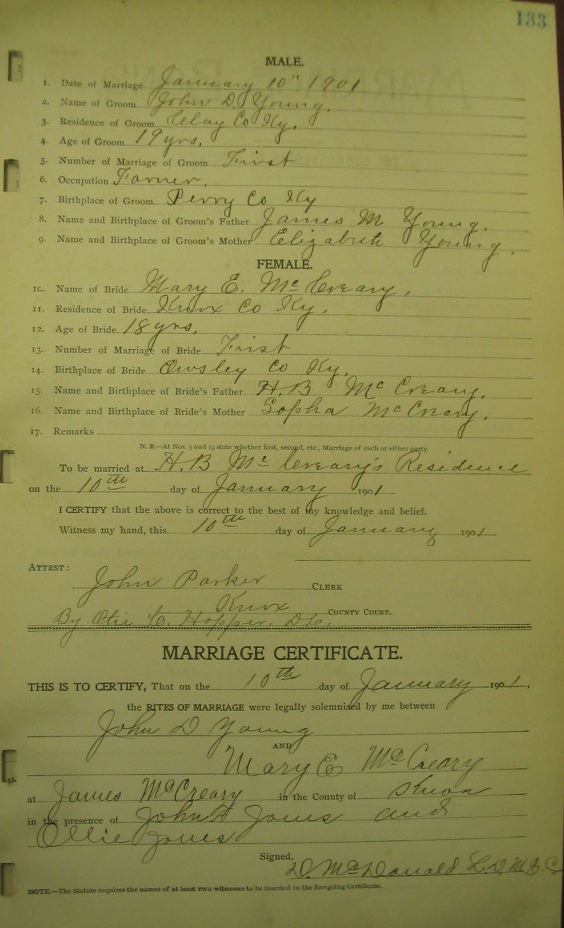 133
MALE.
1. Date of Marriage January 10" 1901
2. Name of Groom John D. Young.
3. Residence of Groom Clay Co Ky.
4. Age of Groom 19 yrs.
5. Number of Marriage of Groom First
6. Occupation Farmer.
7. Birthplace of Groom Perry Co Ky
8. Name and Birthplace of Groom's Father James M Young.
9. Name and Birthplace of Groom's Mother Elizabeth Young.
FEMALE.
10. Name of Bride Mary E. McCreary.
11. Residence of Bride Knox Co Ky.
12. Age of Bride 18 yrs.
13. Number of Marriage of Bride First
14. Birthplace of Bride Owsley Co Ky.
15. Name and Birthplace of Bride's Father H.B McCreary.
16. Name and Birthplace of Bride's Mother Sopha McCreary.
17. Remarks
N. B.—At Nos. 5 and 13 state whether first, second, etc., Marriage of each or either party.
To be married at H.B McCreary's Residence
on the 10th day of January 1901
I CERTIFY that the above is correct to the best of my knowledge and belief.
Witness my hand, this 10th day of January 1901
ATTEST:
John Parker CLERK
Knox COUNTY COURT.
By Otie C. Hopper. D.C.
MARRIAGE CERTIFICATE.
THIS IS TO CERTIFY, That on the 10th day of January 1901.
the RITES OF MARRIAGE were legally solemnized by me between
John D Young
AND
Mary E McCreary
at James McCreary in the County of Knox
in the presence of John H Jones and
Ollie Jones
Signed,
D. McDonald
NOTE.—The Statute requires the names of at least two witnesses to be inserted in the foregoing Certificate.